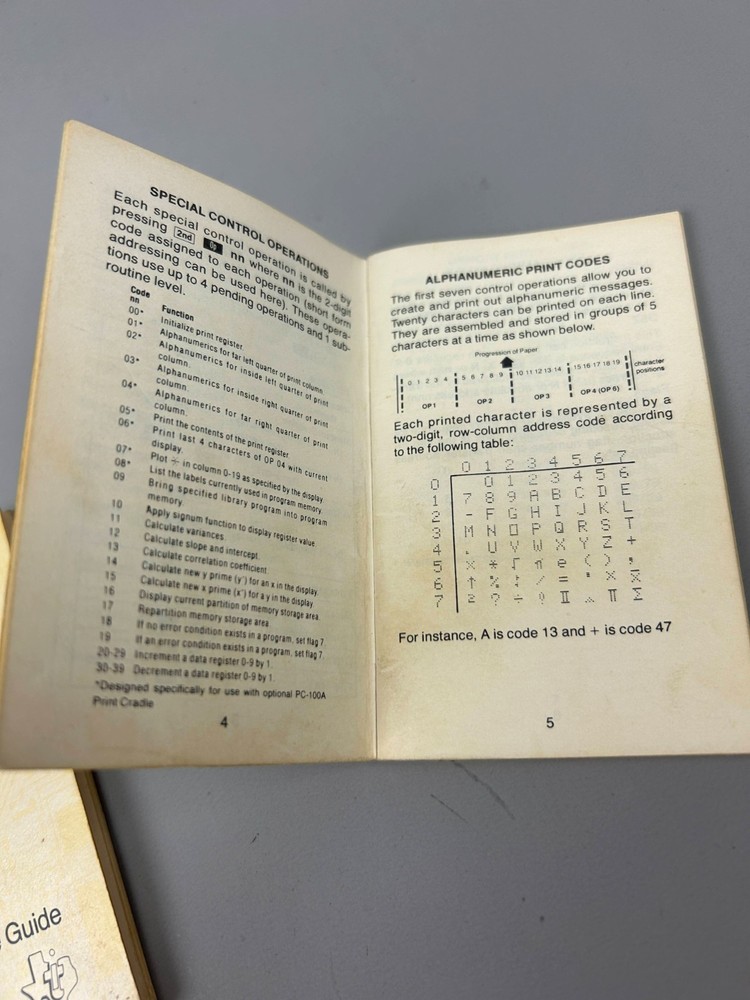 SPECIAL CONTROL OPERATIONS
Each special control operation is called by
pressing 2nd Op nn where nn is the 2-digit
code assigned to each operation (short form
addressing can be used here). These opera-
tions use up to 4 pending operations and 1 sub-
routine level.
Code
nn Function
00* Initialize print register.
01* Alphanumerics for far left quarter of print column.
02* Alphanumerics for inside left quarter of print
column.
03* Alphanumerics for inside right quarter of print
column.
04* Alphanumerics for far right quarter of print
column.
05* Print the contents of the print register.
06* Print last 4 characters of OP 04 with current
display.
07* Plot in column 0-19 as specified by the display.
08* List the labels currently used in program memory.
09 Bring specified library program into program
memory.
10 Apply signum function to display register value.
11 Calculate variances.
12 Calculate slope and intercept.
13 Calculate correlation coefficient.
14 Calculate new y prime (y') for an x in the display.
15 Calculate new x prime (x') for a y in the display.
16 Display current partition of memory storage area.
17 Repartition memory storage area.
18 If no error condition exists in a program, set flag 7.
19 If an error condition exists in a program, set flag 7.
20-29 Increment a data register 0-9 by 1.
30-39 Decrement a data register 0-9 by 1.
*Designed specifically for use with optional PC-100A
Print Cradle
4
ALPHANUMERIC PRINT CODES
The first seven control operations allow you to
create and print out alphanumeric messages.
Twenty characters can be printed on each line.
They are assembled and stored in groups of 5
characters at a time as shown below.
Progression of Paper
0 1 2 3 4 5 6 7 8 9 10 11 12 13 14 15 16 17 18 19 character
positions
OP1 OP2 OP3 OP4 (OP6)
Each printed character is represented by a
two-digit, row-column address code according
to the following table:
0 1 2 3 4 5 6 7
0 0 1 2 3 4 5 6
1 7 8 9 A B C D E
2 - F G H I J K L
3 M N O P Q R S T
4 . U V W X Y Z +
5 × * √ π e ( ) ,
6 ↑ % / = ' X x̄
7 2 ? ÷ II Π Σ
For instance, A is code 13 and + is code 47
5
Guide